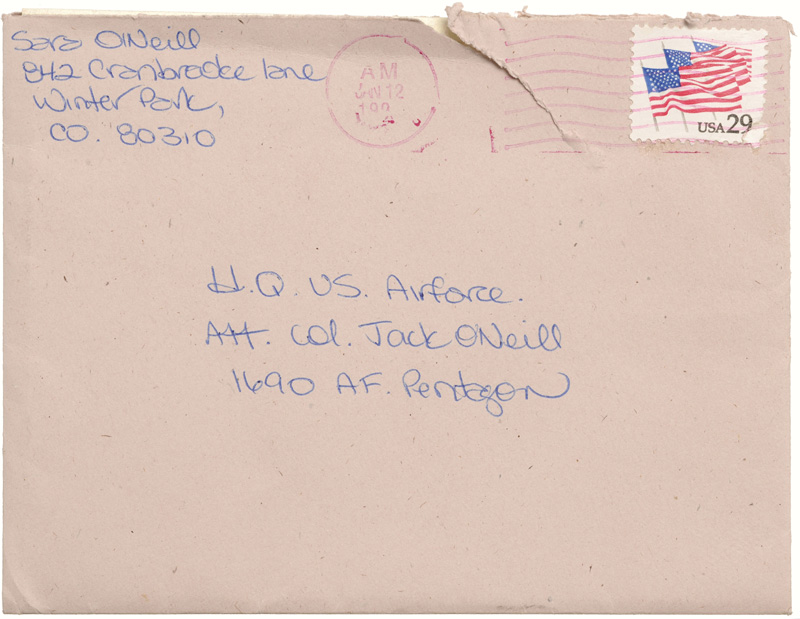 Sara O'Neill
842 Cranbrooke lane
Winter Park,
CO. 80310
AM
JAN 12
199
USA 29
H.Q. US. Airforce.
Att. Col. Jack O'Neill
1690 AF. Pentagon